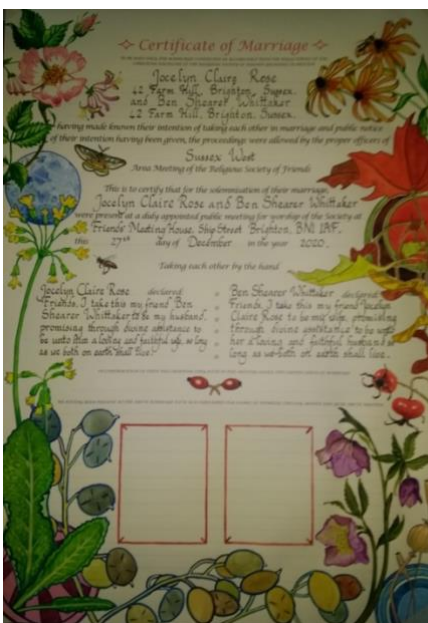 Certificate of Marriage
Jocelyn Claire Rose
42 Farm Hill, Brighton, Sussex.
and Ben Shearer Whittaker
42 Farm Hill, Brighton, Sussex.
having made known their intention of taking each other in marriage and public notice
of their intention having been given, the proceedings were allowed by the proper officers of
Sussex West
Area Meeting of the Religious Society of Friends
This is to certify that for the solemnisation of their marriage,
Jocelyn Claire Rose and Ben Shearer Whittaker
were present at a duly appointed public meeting for worship of the Society at
Friends Meeting House, Ship Street Brighton, BN1 1AF.
this 27th day of December in the year 2020.
Taking each other by the hand
Jocelyn Claire Rose declared:
Friends, I take this my friend Ben
Shearer Whittaker to be my husband,
promising through divine assistance to
be unto him a loving and faithful wife, so long
as we both on earth shall live.
Ben Shearer Whittaker declared:
Friends, I take this my friend Jocelyn
Claire Rose to be my wife, promising
through divine assistance to be unto
her a loving and faithful husband so
long as we both on earth shall live.